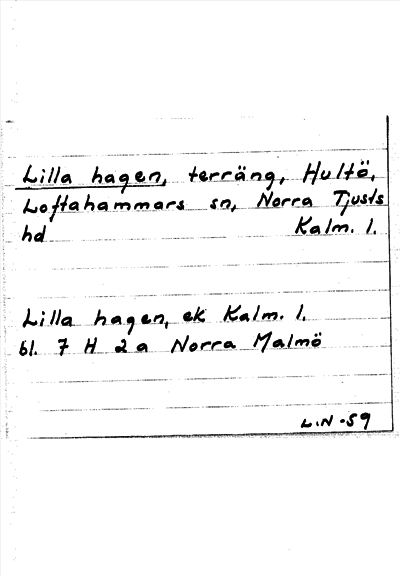 Lilla hagen, terräng, Hultö,
Loftahammars sn, Norra Tjusts
hd Kalm. l.
Lilla hagen, ek Kalm. l.
bl. 7 H 2a Norra Malmö
L.N -59